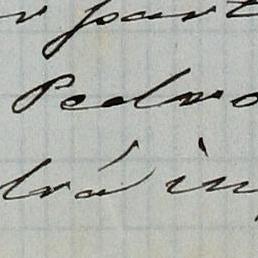 r part
Pedro
drá in